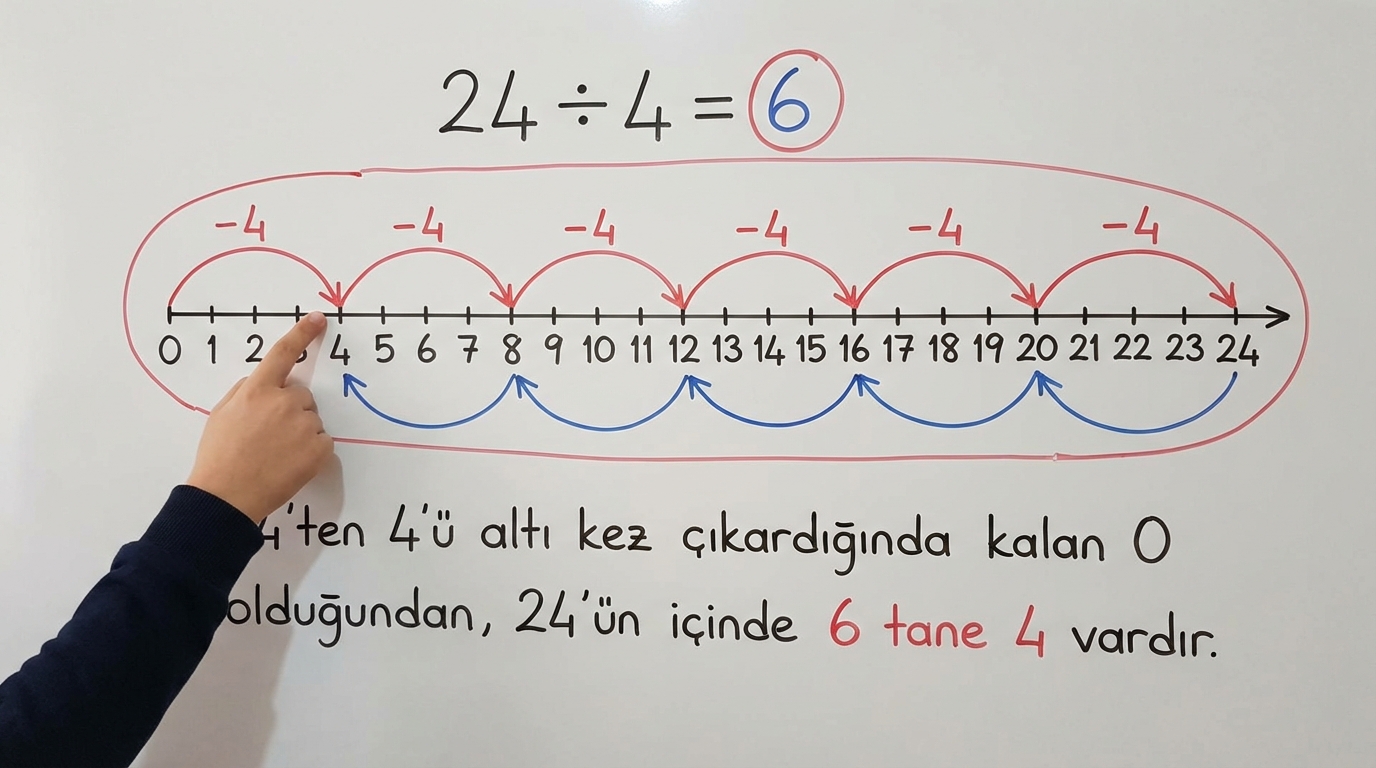 24 ÷ 4 = 6
-4 -4 -4 -4 -4 -4
0 1 2 4 5 6 7 8 9 10 11 12 13 14 15 16 17 18 19 20 21 22 23 24
4'ten 4'ü altı kez çıkardığında kalan 0
olduğundan, 24'ün içinde 6 tane 4 vardır.